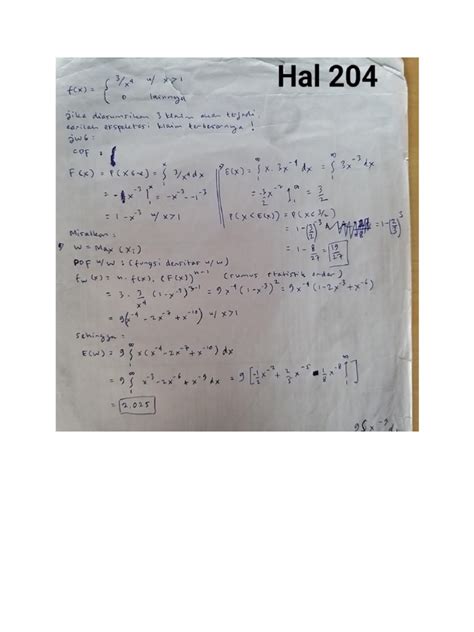 Hal 204
f(x) = { 3/x⁴ u/ x>1
0 lainnya
jika diasumsikan 3 klaim akan terjadi
carilah ekspektasi klaim terbesarnya!
jwb:
CDF :
F(x) = P(X≤x) = ∫₁ˣ 3/x⁴ dx
= -x⁻³ |₁ˣ = -x⁻³ - -1⁻³
= 1 - x⁻³ u/ x>1
E(x) = ∫₁^∞ x. 3x⁻⁴ dx = ∫₁^∞ 3x⁻³ dx
= -3/2 x⁻² |₁^∞ = 3/2
P(X < E(X)) = P(X < 3/2)
= 1-(3/2)⁻³ = 1-(2/3)³
= 1 - 8/27 = 19/27
Misalkan:
W = Max (Xi)
PDF u/ W : (fungsi densitas u/ W)
fw(x) = n. f(x). (F(x))ⁿ⁻¹ (rumus statistik order)
= 3. 3/x⁴ (1-x⁻³)³⁻¹ = 9x⁻⁴ (1-x⁻³)² = 9x⁻⁴ (1-2x⁻³+x⁻⁶)
= 9(x⁻⁴ - 2x⁻⁷ + x⁻¹⁰) u/ x>1
sehingga:
E(W) = 9 ∫₁^∞ x(x⁻⁴ - 2x⁻⁷ + x⁻¹⁰) dx
= 9 ∫₁^∞ x⁻³ - 2x⁻⁶ + x⁻⁹ dx = 9 [-1/2 x⁻² + 2/5 x⁻⁵ - 1/8 x⁻⁸ |₁^∞]
= 2.025